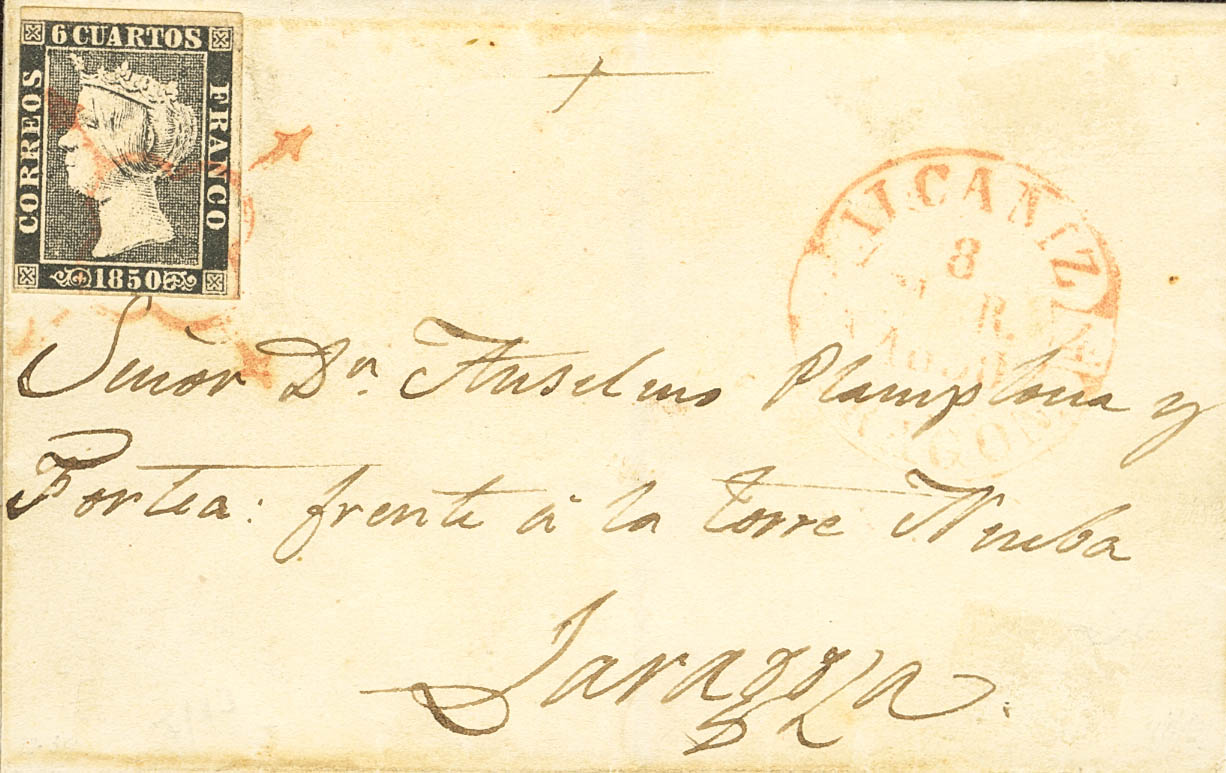 6 CUARTOS
CORREOS
FRANCO
1850
ALCAÑIZ
8
ARAGON
Señor Dn Anselmo Plamplona y
Fortea: frente á la torre Nueba
Zaragoza